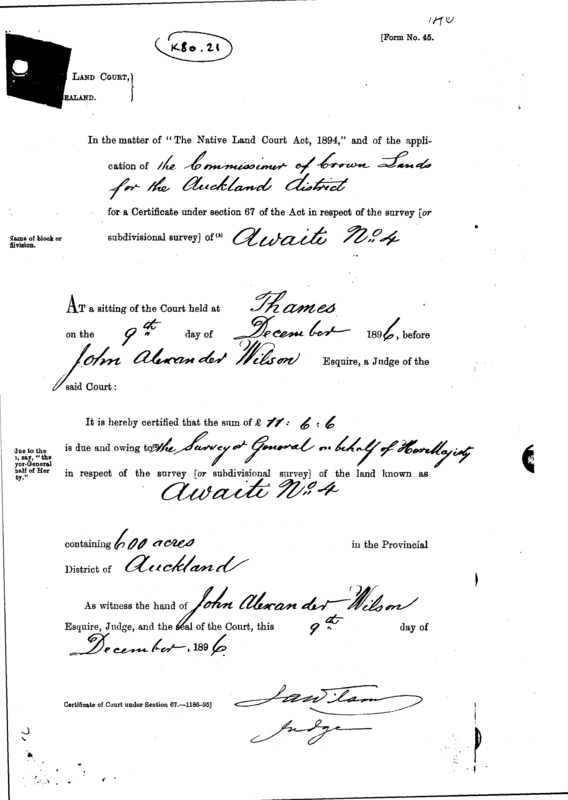 K80.21
[Form No. 45.
LAND COURT,
EALAND.
In the matter of "The Native Land Court Act, 1894," and of the appli-
cation of the Commissioner of Crown Lands
for the Auckland district
for a Certificate under section 67 of the Act in respect of the survey [or
Name of block or
division.
subdivisional survey] of (a) Awaite No. 4
AT a sitting of the Court held at Thames
on the 9th day of December 1896, before
John Alexander Wilson Esquire, a Judge of the
said Court:
It is hereby certified that the sum of £ 11 : 6 : 6
due to the
, say, "the
yor-General
half of Her
ty."
is due and owing to the Surveyor General on behalf of Her Majesty
in respect of the survey [or subdivisional survey] of the land known as
Awaite No. 4
containing 600 acres in the Provincial
District of Auckland
As witness the hand of John Alexander Wilson
Esquire, Judge, and the seal of the Court, this 9th day of
December, 1896
Certificate of Court under Section 67.—1186-95]
JAWilson
Judge